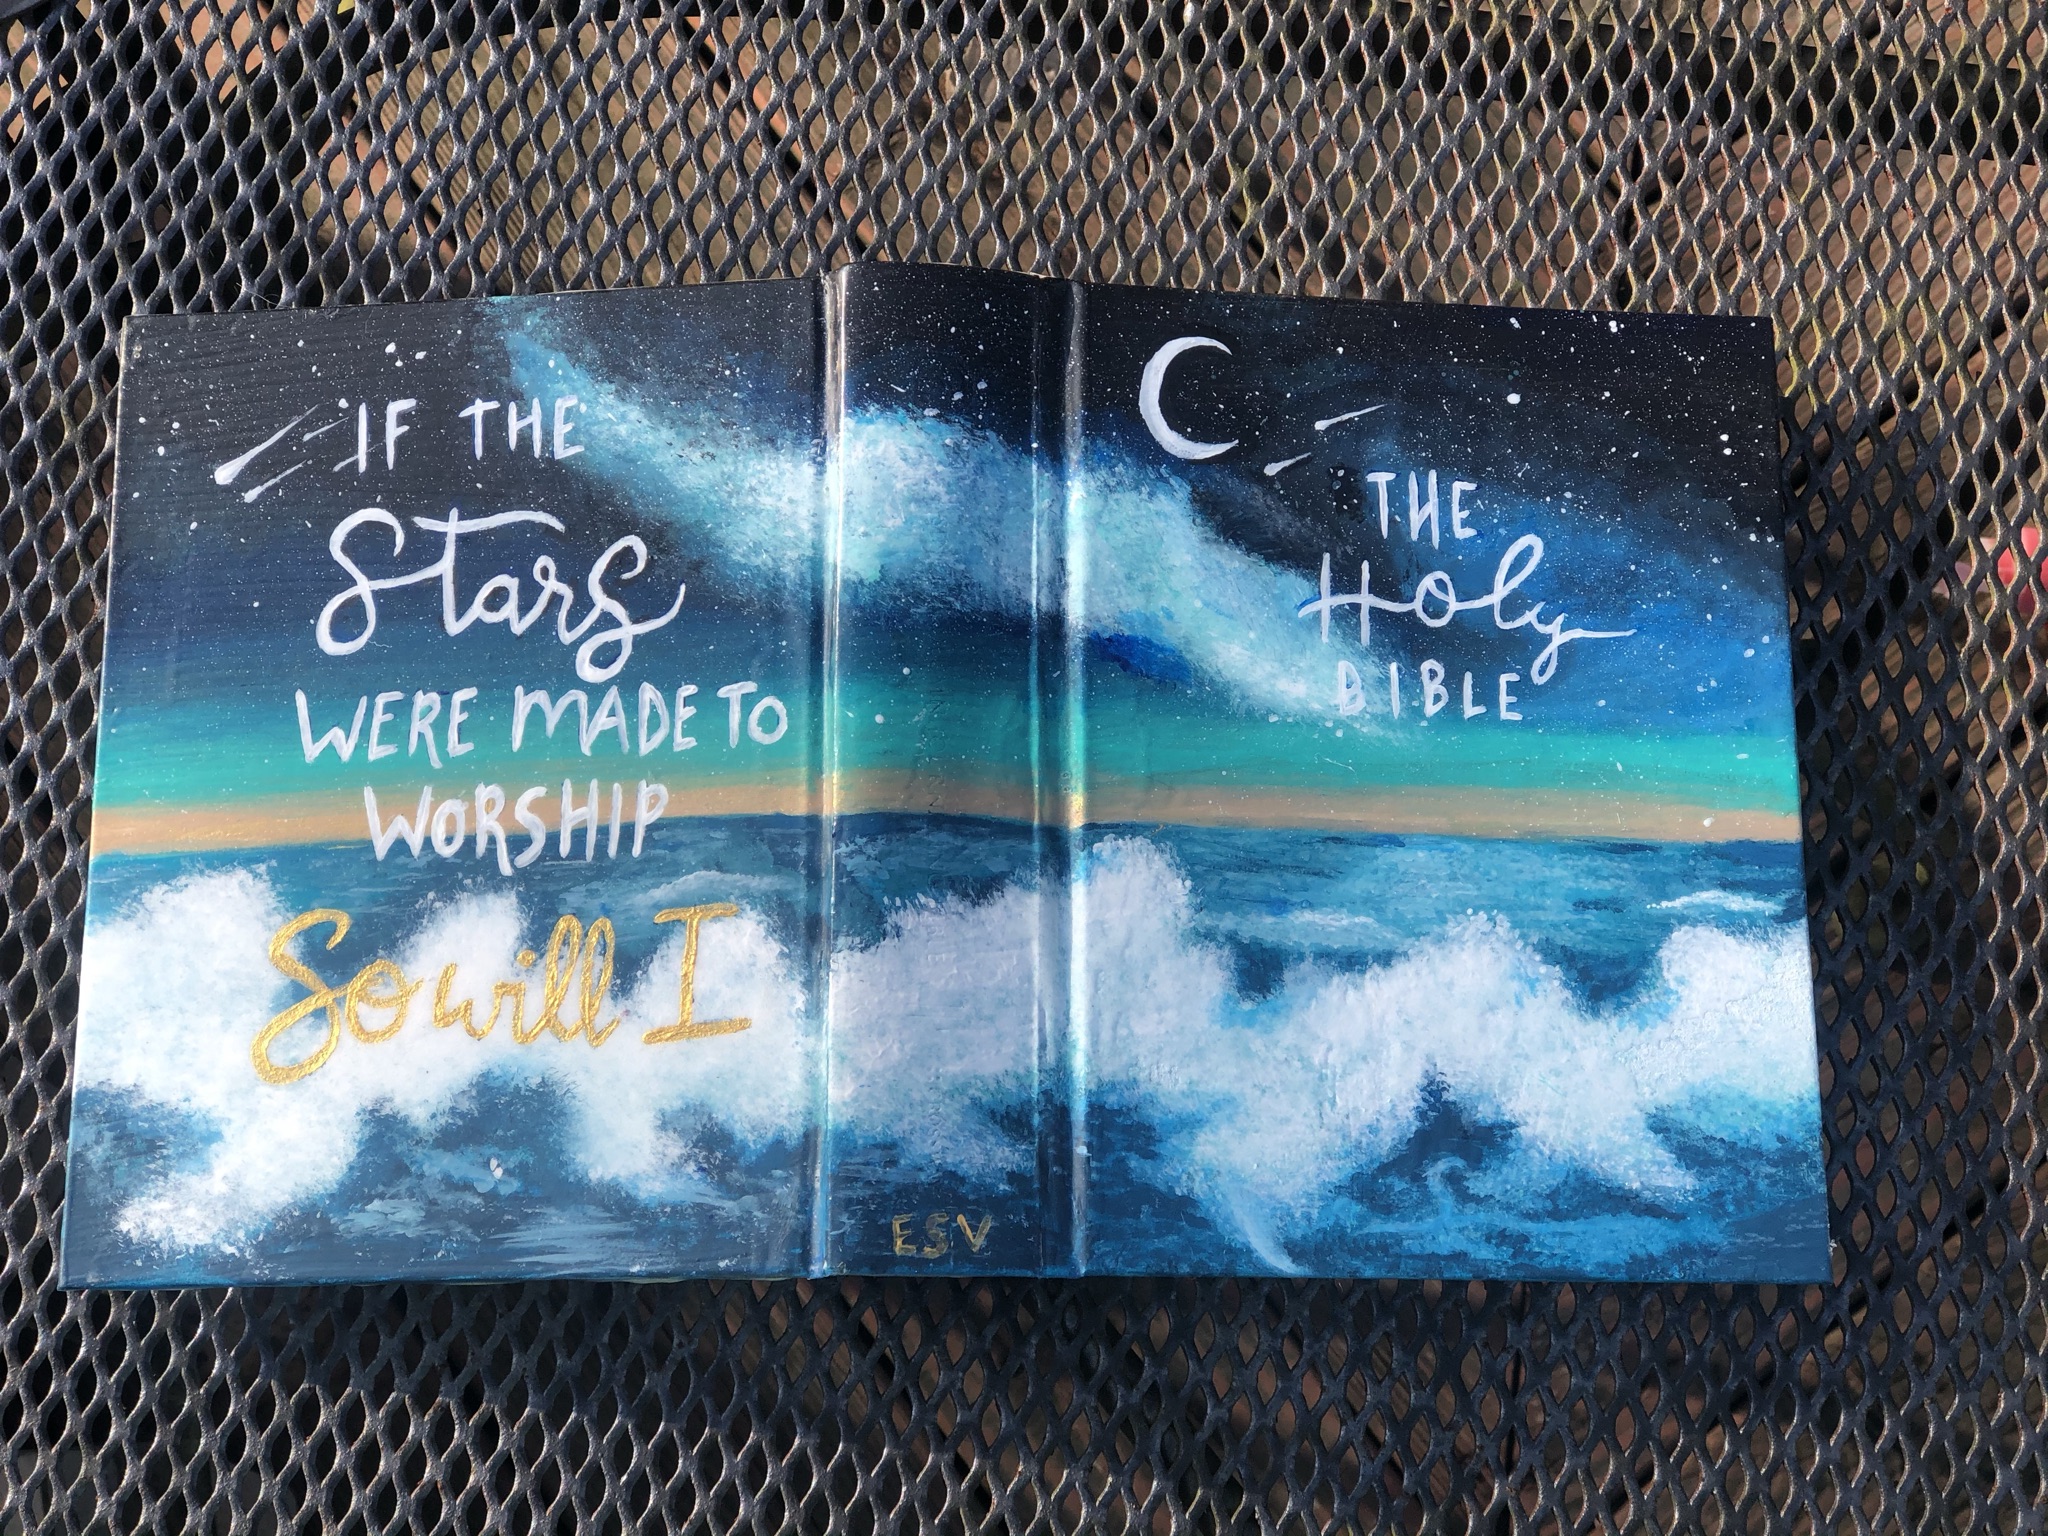 IF THE
Stars
WERE MADE TO
WORSHIP
So will I
ESV
THE
Holy
BIBLE